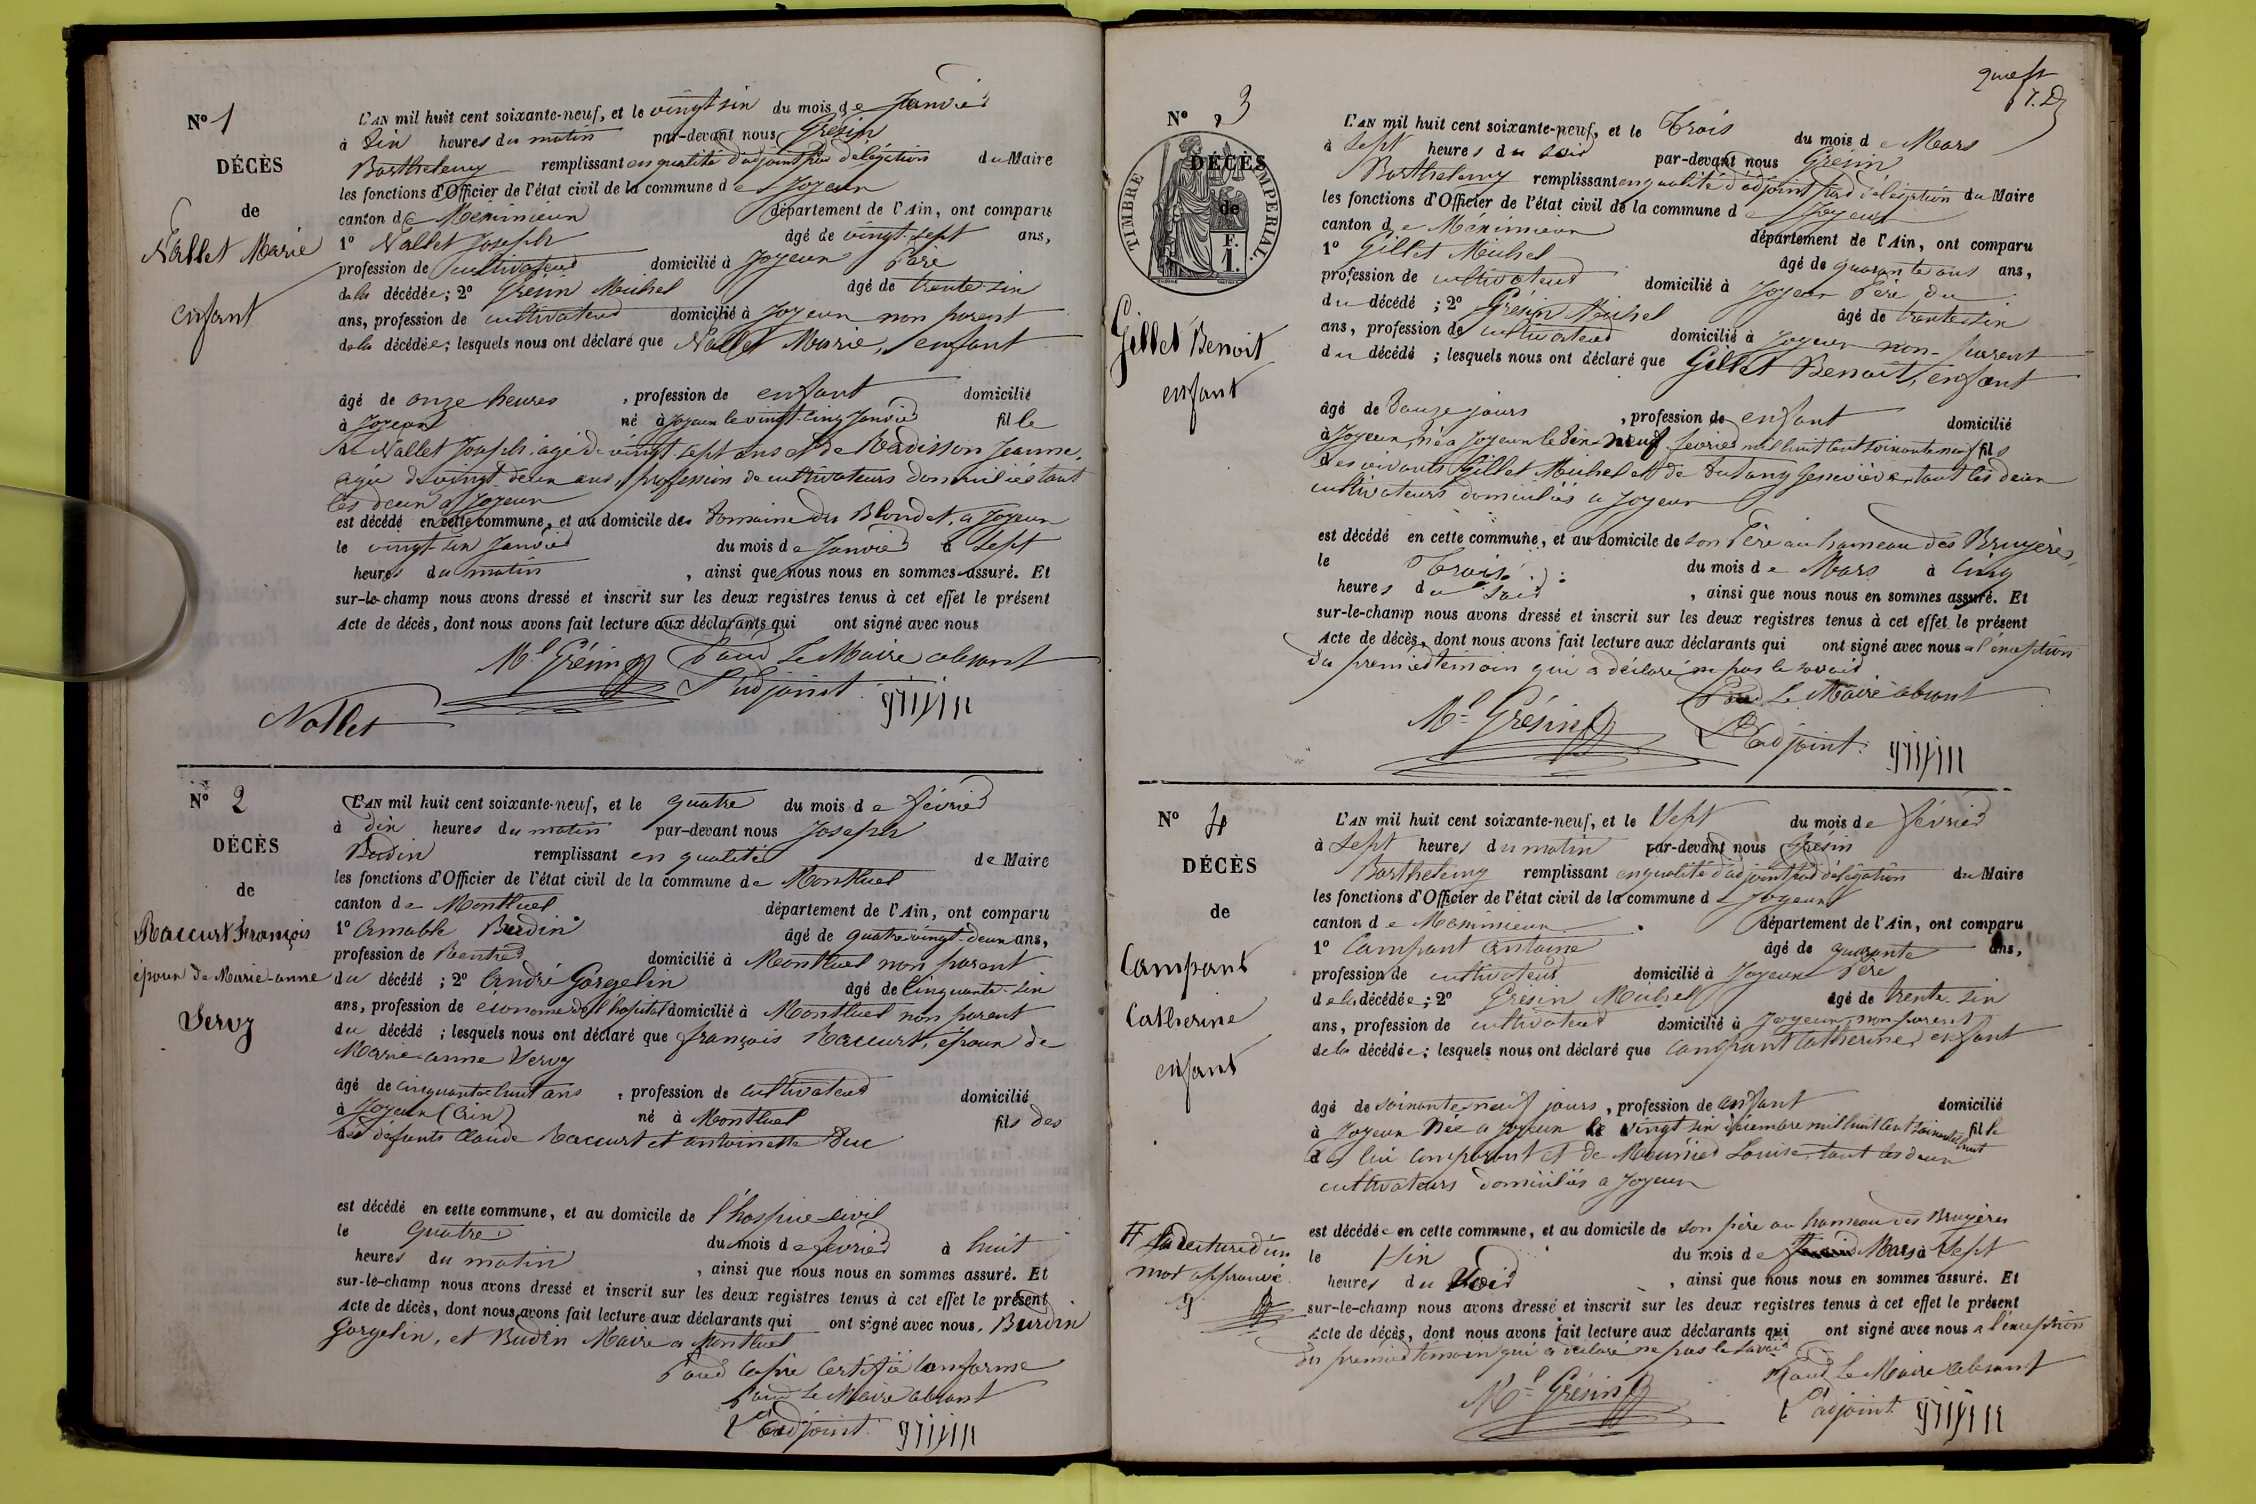 N° 1
DÉCÈS
de
Nallet Marie
enfant
L'AN mil huit cent soixante-neuf, et le vingt six du mois de Janvier
à dix heures du matin par-devant nous Grésin
Barthelemy remplissant en qualité d'adjoint par délégation du Maire
les fonctions d'Officier de l'état civil de la commune de Joyeux
canton de Meximieux département de l'Ain, ont comparu
1° Nallet Joseph âgé de vingt-sept ans,
profession de cultivateur domicilié à Joyeux Père
de la décédée; 2° Grésin Michel âgé de trente-six
ans, profession de cultivateur domicilié à Joyeux non parent
de la décédée; lesquels nous ont déclaré que Nallet Marie, enfant
âgé de onze heures, profession de enfant domicilié
à Joyeux né à Joyeux le vingt-cinq Janvier fille
de Nallet Joseph, âgé de vingt sept ans et de Radisson Jeanne,
agée de vingt-deux ans, profession de cultivateurs domiciliés tout
les deux à Joyeux
est décédé en cette commune, et au domicile des domaine du Blondet, a Joyeux
le vingt-six Janvier du mois de Janvier à Sept
heures du matin, ainsi que nous nous en sommes assuré. Et
sur-le-champ nous avons dressé et inscrit sur les deux registres tenus à cet effet le présent
Acte de décès, dont nous avons fait lecture aux déclarants qui ont signé avec nous
Ml Grésin Pour Le Maire absent
L'adjoint grésin
Nallet
N° 2
DÉCÈS
de
Raccurt François
époux de Marie-anne
Servoz
L'AN mil huit cent soixante-neuf, et le quatre du mois de février
à dix heures du matin par-devant nous Joseph
Budin remplissant en qualité de Maire
les fonctions d'Officier de l'état civil de la commune de Montluel
canton de Montluel département de l'Ain, ont comparu
1° Amable Budin âgé de quatre-vingt-deux ans,
profession de Rentier domicilié à Montluel non parent
du décédé; 2° André Gorgelin âgé de cinquante-six
ans, profession de économe de l'hopital domicilié à Montluel non parent
du décédé; lesquels nous ont déclaré que françois Raccurt, époux de
Marie-anne Servoz
âgé de cinquante huit ans, profession de cultivateur domicilié
à Joyeux (Ain) né à Montluel fils des
des défunts Claude Raccurt et antoinette Duc
est décédé en cette commune, et au domicile de l'hospice-civil
le quatre du mois de février à huit
heures du matin, ainsi que nous nous en sommes assuré. Et
sur-le-champ nous avons dressé et inscrit sur les deux registres tenus à cet effet le présent
Acte de décès, dont nous avons fait lecture aux déclarants qui ont signé avec nous, Burdin
Gorgelin, et Budin Maire a Montluel
Pour copie certifié conforme
Pour Le Maire absent
L'adjoint grésin
N° 3
TIMBRE IMPERIAL
F.
1.
DÉCÈS
de
Gillet Benoit
enfant
L'AN mil huit cent soixante-neuf, et le Trois du mois de Mars
à Sept heures du soir par-devant nous Grésin
Barthelemy remplissant en qualité d'adjoint par délégation du Maire
les fonctions d'Officier de l'état civil de la commune de Joyeux
canton de Méximieux département de l'Ain, ont comparu
1° Gillet Michel âgé de quarante ans ans,
profession de cultivateur domicilié à Joyeux Père du
du décédé; 2° Grésin Michel âgé de trente-six
ans, profession de cultivateur domicilié à Joyeux non-parent
du décédé; lesquels nous ont déclaré que Gillet Benoit, enfant
âgé de Douze jours, profession de enfant domicilié
à Joyeux, né a Joyeux le dix neuf février mil huit cent soixante neuf fils
des vivants Gillet Michel et de Geneviève, tout les deux
cultivateurs domiciliés a Joyeux
est décédé en cette commune, et au domicile de son Père au hameau des Bruyères,
le Trois du mois de Mars à Cinq
heures du soir, ainsi que nous nous en sommes assuré. Et
sur-le-champ nous avons dressé et inscrit sur les deux registres tenus à cet effet le présent
Acte de décès, dont nous avons fait lecture aux déclarants qui ont signé avec nous a l'exception
du premier témoin qui a déclaré ne pas le savoir
Pour Le Maire absent
Ml Grésin L'adjoint grésin
N° 4
DÉCÈS
de
Campant
Catherine
enfant
L'AN mil huit cent soixante-neuf, et le Sept du mois de février
à Sept heures du matin par-devant nous Grésin
Barthelemy remplissant en qualité d'adjoint par délégation du Maire
les fonctions d'Officier de l'état civil de la commune de Joyeux
canton de Meximieux département de l'Ain, ont comparu
1° Campant Antoine âgé de quarante ans,
profession de cultivateur domicilié à Joyeux Père
de la décédée; 2° Grésin Michel âgé de trente six
ans, profession de cultivateur domicilié à Joyeux, non parent
de la décédée; lesquels nous ont déclaré que Campant Catherine, enfant
âgé de soixante-neuf jours, profession de enfant domicilié
à Joyeux Née a Joyeux le vingt six décembre mil huit cent soixante huit fille
de lui comparant et de Meunier Louise, tout les deux
cultivateurs domiciliés a Joyeux
est décédée en cette commune, et au domicile de son père au hameau des Bruyères
le Six du mois de Mars à Sept
heures du Soir, ainsi que nous nous en sommes assuré. Et
sur-le-champ nous avons dressé et inscrit sur les deux registres tenus à cet effet le présent
Acte de décès, dont nous avons fait lecture aux déclarants qui ont signé avec nous a l'exception
du premier témoin qui a déclaré ne pas le savoir
mot approuvé
Pour Le Maire absent
Ml Grésin L'adjoint grésin